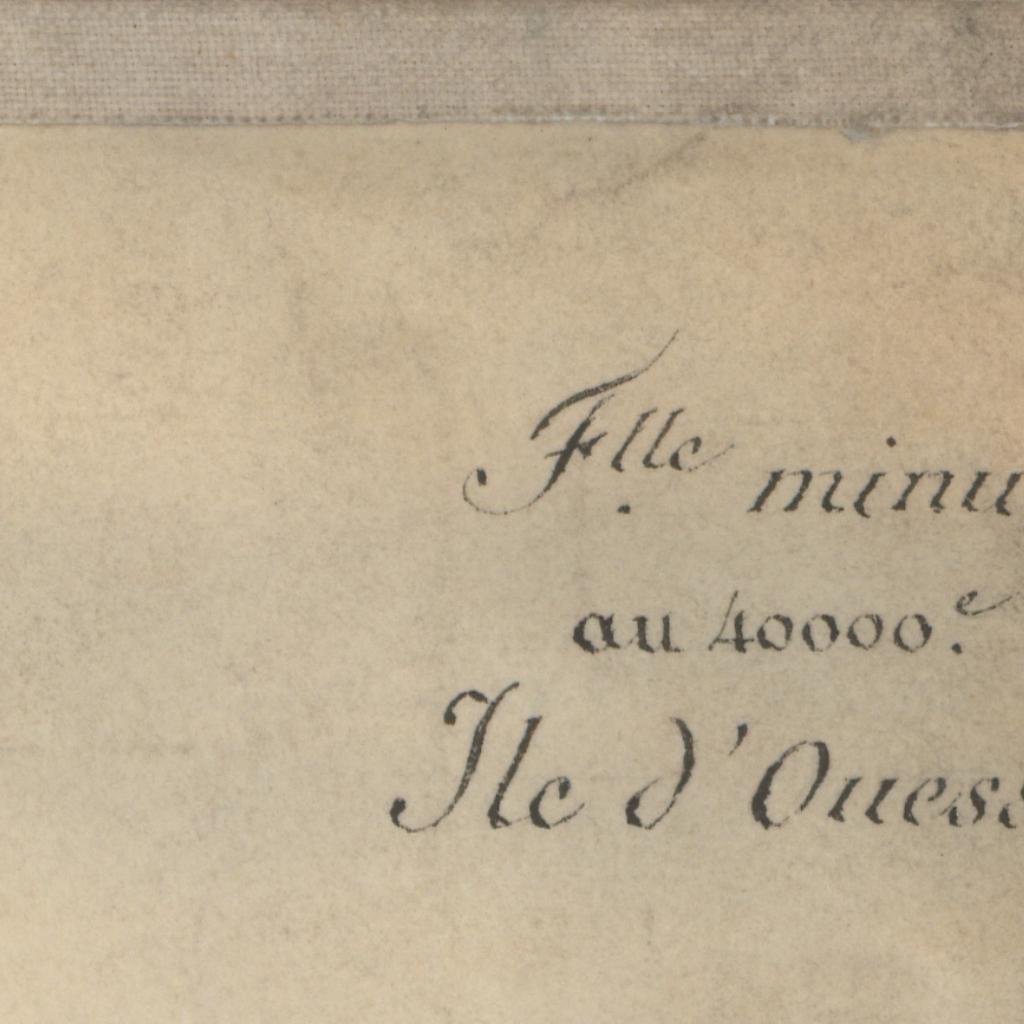 Flle. minu
au 40000.e
Ile d'Ouess